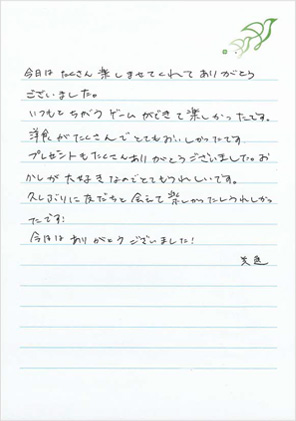 今日は たくさん 楽しませてくれて ありがとう
ございました。
いつもと ちがう ゲーム ができて 楽しかったです。
洋食が たくさんで とてもおいしかったです
プレゼントも たくさん ありがとうございました。お
かしが 大好きなのでとてもうれしいです。
久しぶりに 友だちと 会えて 楽しかったしうれしかっ
たです!
今日は ありがとう ございました!